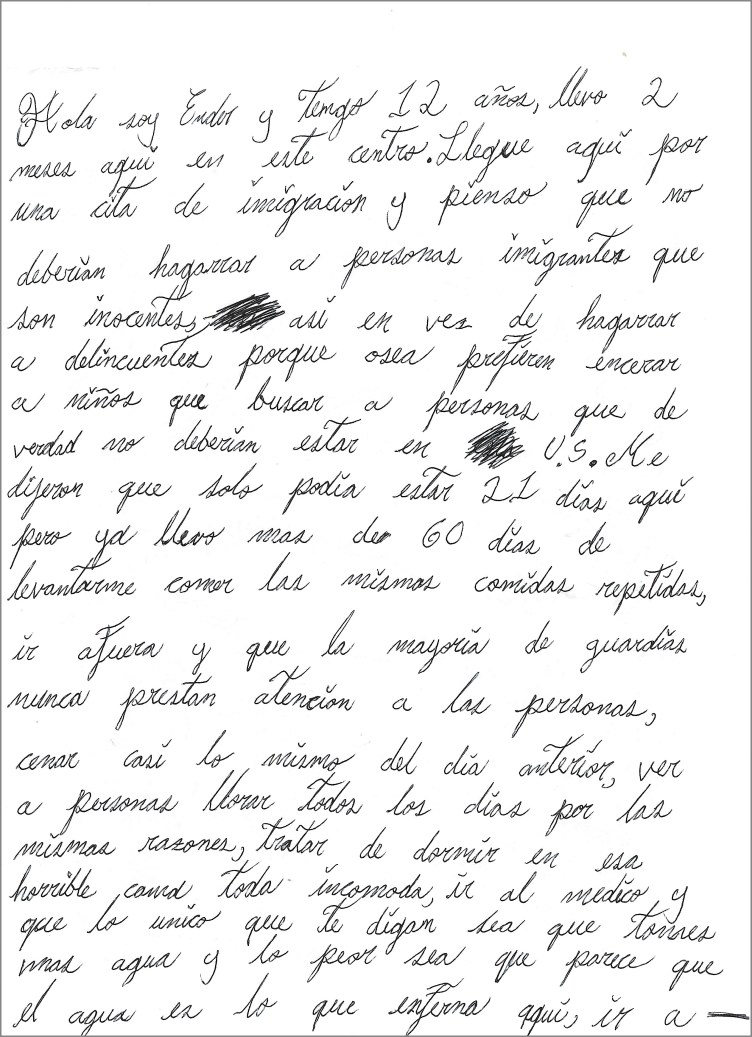 Hola soy Ender y tengo 12 años, llevo 2
meses aquí en este centro. Llegue aquí por
una cita de imigración y pienso que no
deberían hagarrar a personas imigrantes que
son inocentes, así en vez de hagarrar
a delincuentes porque osea prefieren encerar
a niños que buscar a personas que de
verdad no deberían estar en U.S. Me
dijeron que solo podía estar 21 días aquí
pero ya llevo mas de 60 días de
levantarme comer las mismas comidas repetidas,
ir afuera y que la mayoría de guardias
nunca prestan atención a las personas,
cenar casi lo mismo del día anterior, ver
a personas llorar todos los días por las
mismas razones, tratar de dormir en esa
horrible cama toda incomoda, ir al medico y
que lo unico que te digan sea que tomes
mas agua y lo peor sea que parece que
el agua es lo que enferma aquí, ir a —